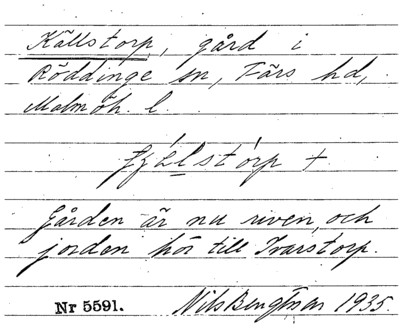 Källstorp, gård i
Röddinge sn, Färs hd,
Malmöh. l.
Gården är nu riven, och
jorden hör till Ivarstorp.
Nr 5591. Nils Bengtsson 1935.